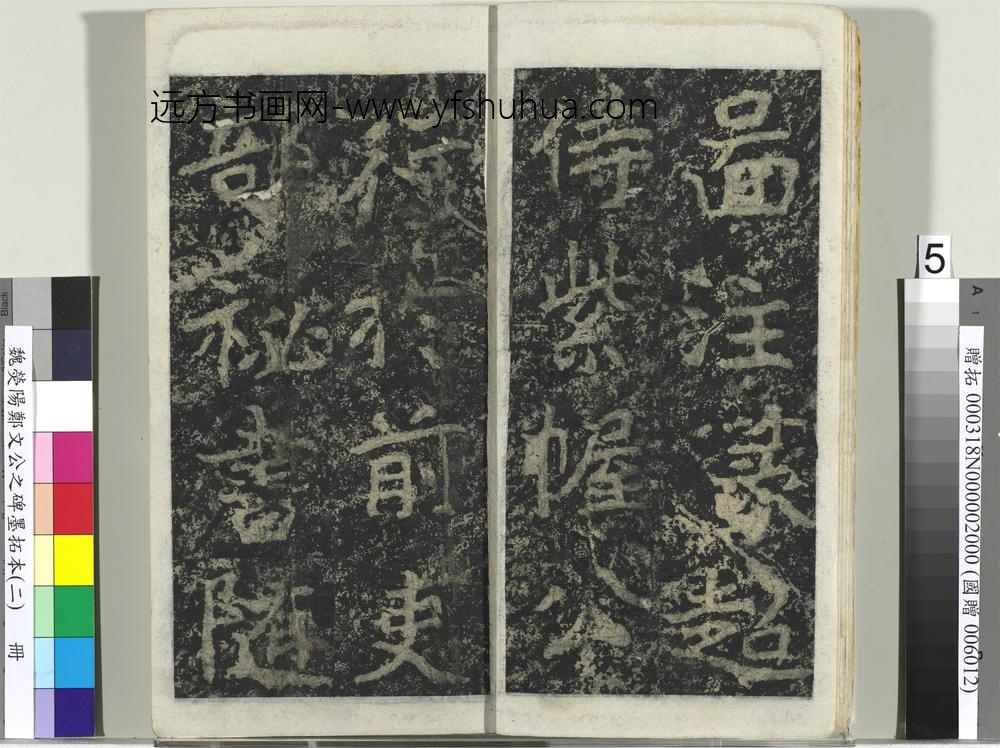 啚注篆超
侍紫幄公
行於前吏
部秘書隨
远方书画网-www.yfshuhua.com
魏熒陽鄭文公之碑墨拓本(二) 冊
贈拓 000318N000002000 (國贈 006012)
5
Black
A
1